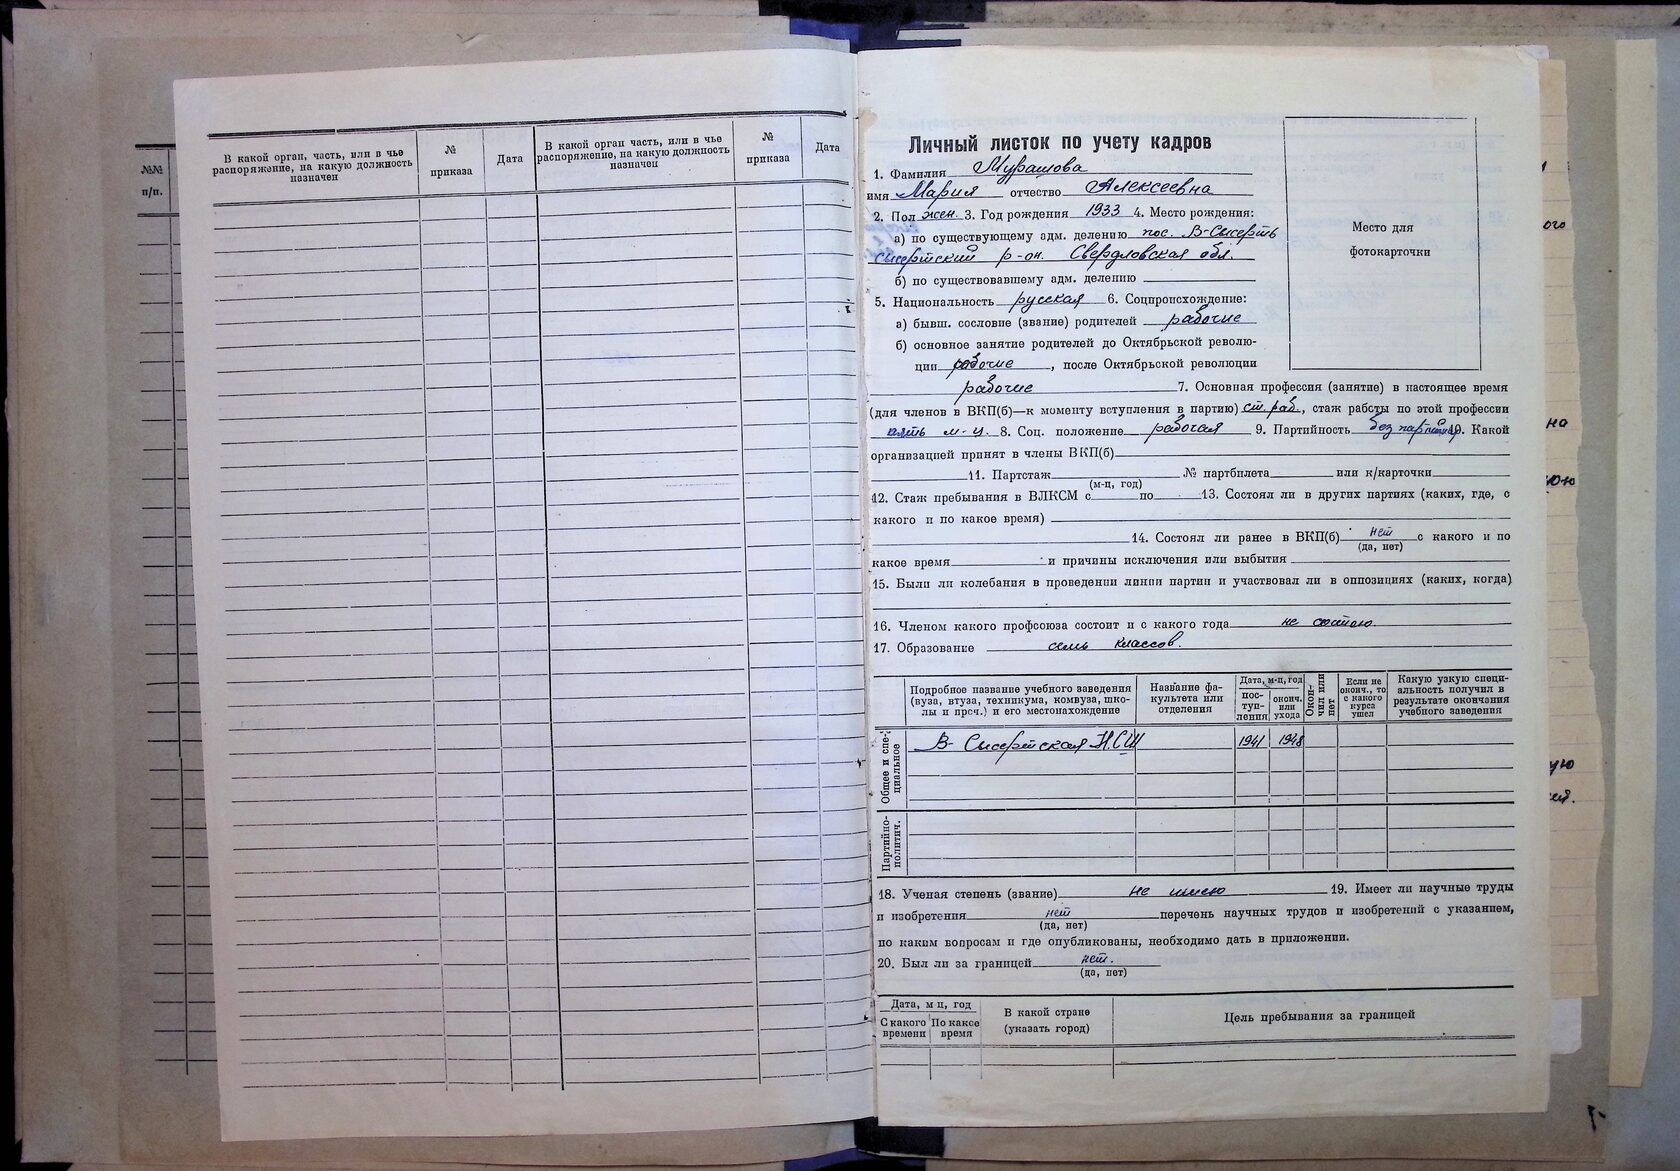 №№
п/п.
В какой орган, часть, или в чье
распоряжение, на какую должность
назначен
№
приказа
Дата
В какой орган часть, или в чье
распоряжение, на какую должность
назначен
№
приказа
Дата
Личный листок по учету кадров
1. Фамилия Мурашова
имя Мария отчество Алексеевна
2. Пол жен. 3. Год рождения 1933 4. Место рождения:
а) по существующему адм. делению пос. В-Сысерть
Сысертский р-он. Свердловская обл.
б) по существовавшему адм. делению
5. Национальность русская 6. Соцпроисхождение:
а) бывш. сословие (звание) родителей рабочие
б) основное занятие родителей до Октябрьской револю-
ции рабочие, после Октябрьской революции
рабочие 7. Основная профессия (занятие) в настоящее время
(для членов в ВКП(б)—к моменту вступления в партию) ст. раб., стаж работы по этой профессии
пять м-ц. 8. Соц. положение рабочая 9. Партийность 10. Какой
организацией принят в члены ВКП(б)
11. Партстаж № партбилета или к/карточки
(м-ц, год)
12. Стаж пребывания в ВЛКСМ с по 13. Состоял ли в других партиях (каких, где, с
какого и по какое время)
14. Состоял ли ранее в ВКП(б) нет с какого и по
(да, нет)
какое время и причины исключения или выбытия
15. Были ли колебания в проведении линии партии и участвовал ли в оппозициях (каких, когда)
16. Членом какого профсоюза состоит и с какого года не состою.
17. Образование семь классов.
Подробное название учебного заведения
(вуза, втуза, техникума, комвуза, шко-
лы и проч.) и его местонахождение
Название фа-
культета или
отделения
Дата, м-ц, год
пос-
туп-
ления
оконч.
или
ухода
Окон-
чил или
нет
Если не
оконч., то
с какого
курса
ушел
Какую узкую специ-
альность получил в
результате окончания
учебного заведения
Общее и спе-
циальное
В- Сысертская Н.СШ 1941 1948
Партийно-
политич.
18. Ученая степень (звание) не имею 19. Имеет ли научные труды
и изобретения нет перечень научных трудов и изобретений с указанием,
(да, нет)
по каким вопросам и где опубликованы, необходимо дать в приложении.
20. Был ли за границей нет.
(да, нет)
Дата, м ц, год
С какого
времени
По какое
время
В какой стране
(указать город)
Цель пребывания за границей
Место для
фотокарточки